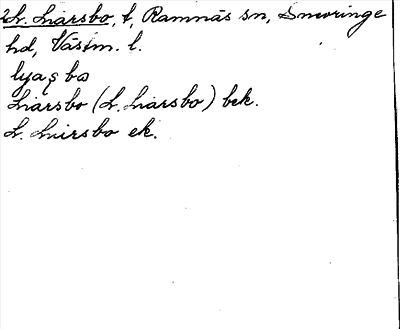 2L. Liarsbo, t, Ramnäs sn, Snevringe
hd, Västm. l.
lyaʂ bo
Liarsbo (L. Liarsbo) bek.
L. Liursbo ek.